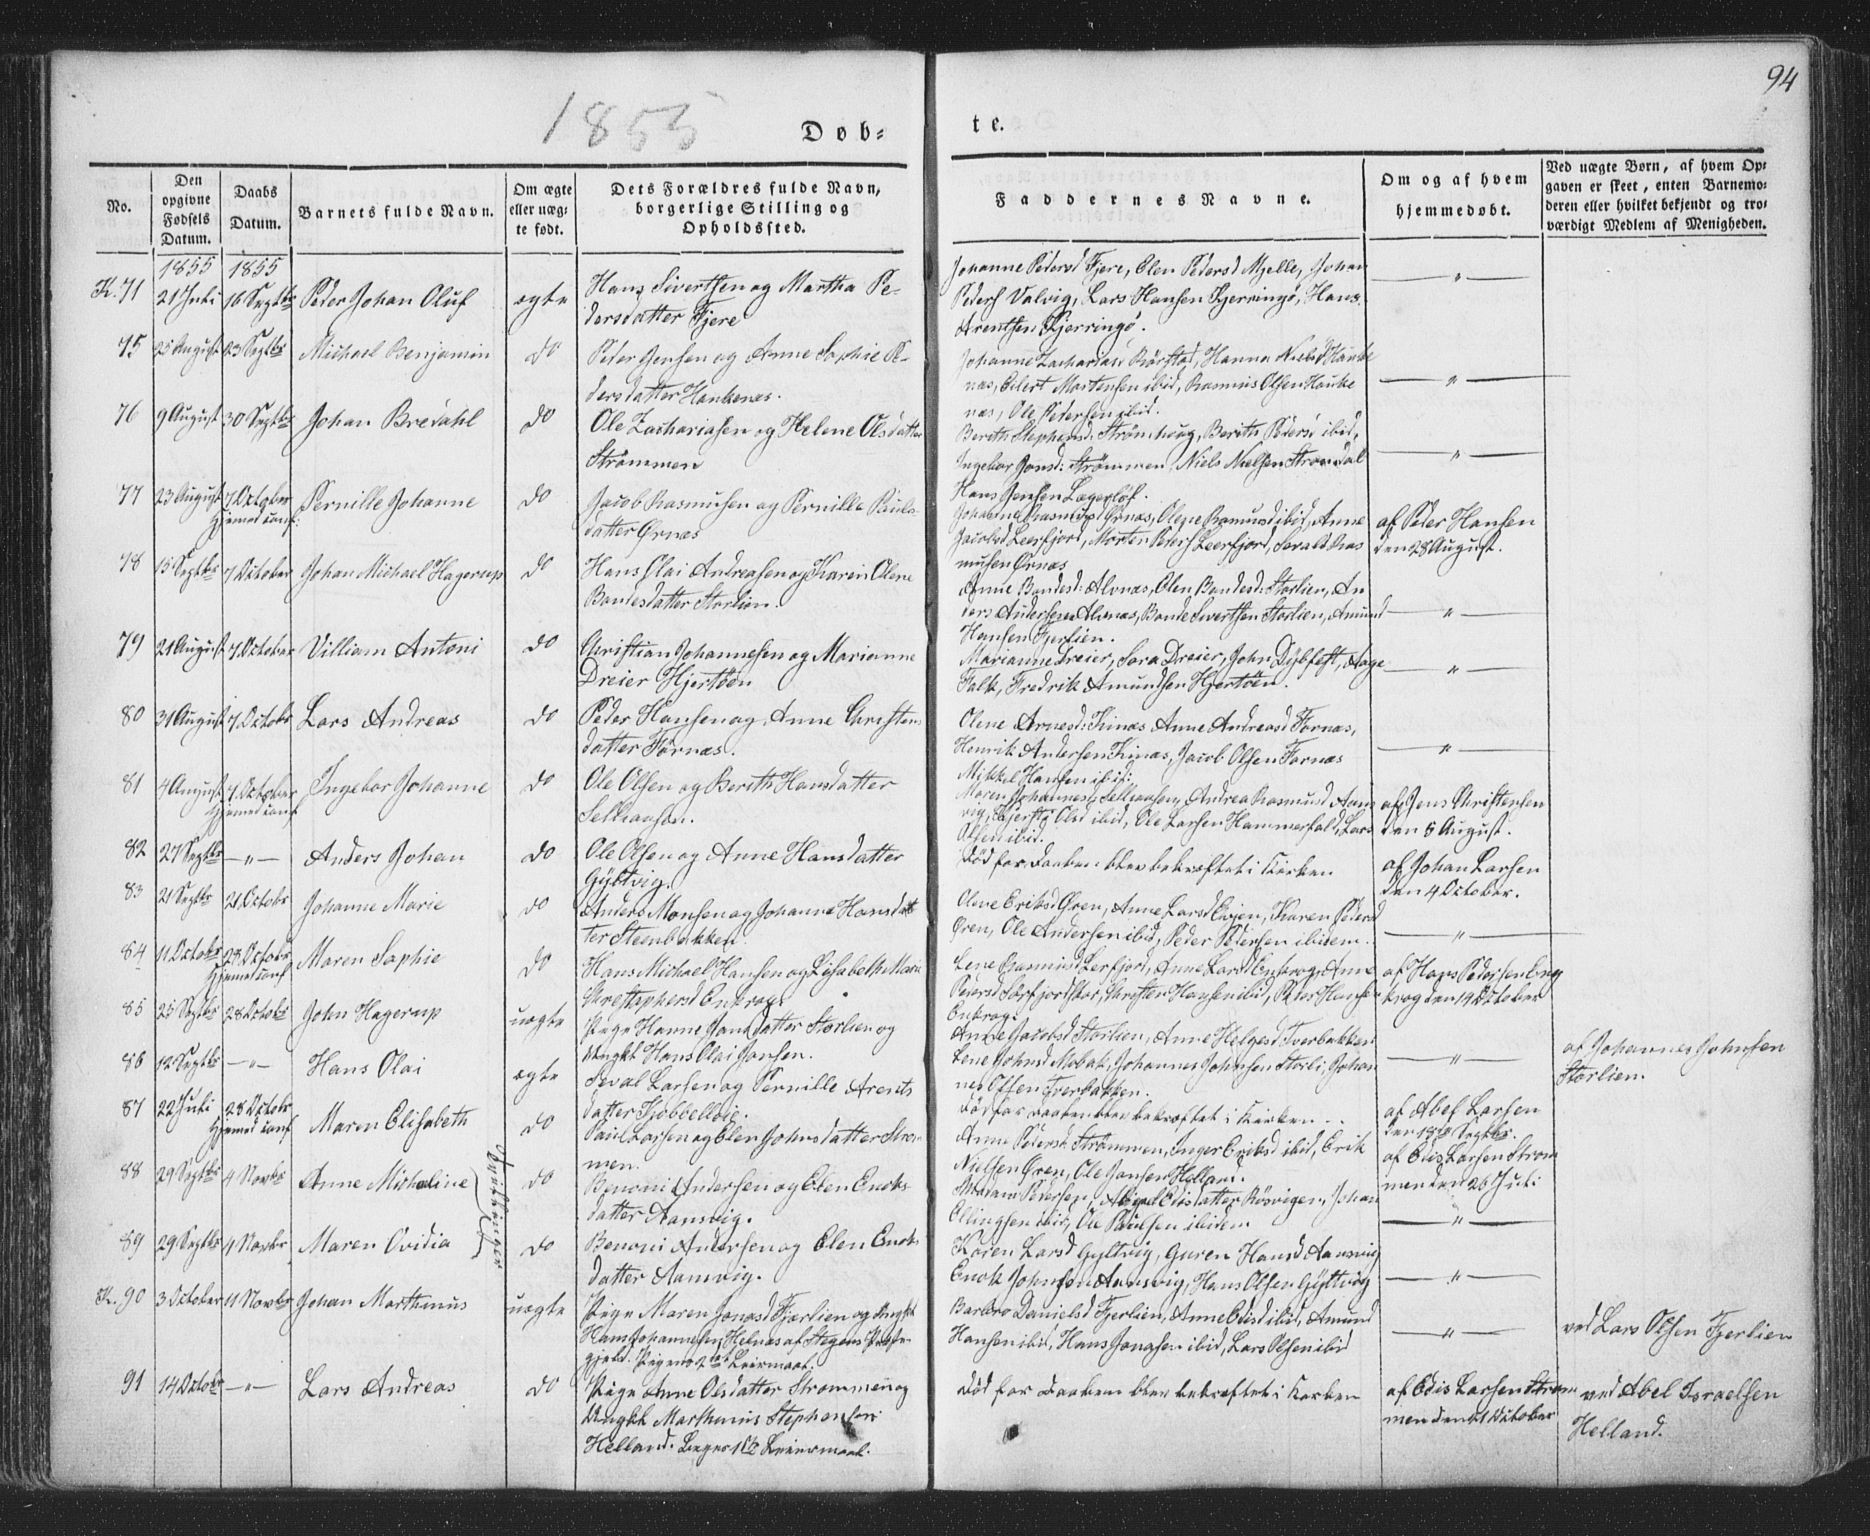 94
1855
Døb- te.
No.
Den opgivne Fødsels Datum.
Daabs Datum.
Barnets fulde Navn.
Om ægte eller uægte født.
Dets Forældres fulde Navn, borgerlige Stilling og Opholdssted.
Faddernes Navne.
Om og af hvem hjemmedøbt.
Ved uægte Børn, af hvem Opgaven er skeet, enten Barnemoderen eller hvilket bekjendt og troværdigt Medlem af Menigheden.
1855 1855
K. 71 21 Juli 16 Septbr Peder Johan Oluf ægte
Hans Sivertsen og Martha Pe-
dersdatter Fjere
Johanne Pedersd Fjere, Elen Pedersd Mjelle, Johan
Peders Valvig, Lars Hansen Kjerringø, Hans
Arentsen Kjerringø.
— " —
75 25 August 23 Septbr Michael Benjamin do
Peder Jensen og Anne Sophie Pe-
dersdatter Haukenæs.
Johanne Zachariasd Rørstad, Hanna Nielsd Hauke
næs, Edert Mortensen ibid, Rasmus Olsen Hauke
næs, Ole Pedersen ibid.
— " —
76 9 August 30 Septbr Johan Bredahl do
Ole Zachariasen og Helene Olsdatter
Strømmen
Berith Stephensd: Strømhaug, Berith Pedersd ibid,
Ingebor Jonsd: Strømmen, Niels Nielsen Strømdal
Hans Jensen Lægerløf.
— " —
77 23 August 7 October Pernille Johanne do
Hjemed. conf:
Jacob Rasmusen og Pernille Pauls-
datter Ørnæs
Johanne Rasmusd Ørnæs, Olene Rasmusd ibid, Anne
Jacobsd Leerfjord, Morten Peders Leerfjord, Sevald Ras
musen Ørnæs
af Peder Hansen
den 28 August.
78 15 Septbr 7 October Johan Michael Hagerup do
Hans Olai Andreasen og Karen Olene
Bondesdatter Storlien.
Anne Bondesd: Alvnæs, Elen Bondesd: Storlien, An
ders Andersen Alvnæs, Bonde Sivertsen Storlien, Amund
Hansen Fjerlien.
— " —
79 21 August 7 October Villiam Antoni do
Christian Johannesen og Marianne
Dreier Hjertøen
Marianne Dreier, Sara Dreier, John Dybfest, Aage
Falk, Fredrik Amundsen Hjertøen.
— " —
80 31 August 7 Octobr Lars Andreas do
Peder Hansen og Anne Christens
datter Førnæs.
Olene Arnesd: Kinæs, Anne Andreasd Fornæs,
Henrik Andersen Kinæs, Jacob Olsen Fornæs
Mikkel Hansen ibid:
— " —
81 4 August 7 October Ingebor Johanne do
Hjemed conf
Ole Olsen og Berith Hansdatter
Selliaasen.
Maren Johannesd Selliaasen, Andrea Rasmusd Aans
vig, Kjersti Olsd ibid, Ole Larsen Hammerfald, Lars
Olsen ibid.
af Jens Christensen
den 5 August.
82 27 Septbr — " — Anders Johan do
Ole Olsen og Anne Hansdatter
Gyltvig.
Død før Daaben blev bekræftet i Kirken
af Johan Larsen
den 4 October.
83 21 Septbr 21 Octobr Johanne Marie do
Anders Monsen og Johanne Hansdat
ter Steenbakken.
Olene Eriksd Øren, Anne Larsd Evjen, Karen Pedersd
Øren, Ole Andersen ibid, Peder Pedersen ibidem.
— " —
84 11 Octobr 28 Octobr Maren Sophie do
Hjemed conf
Hans Michael Hansen og Lisabeth Marie
Christophersd Enkrog.
Lene Rasmusd Leerfjord, Anne Larsd Enkrog, Anne
Pedersd Sørfjordskar, Christen Hansen ibid, Peter Hansen
Enkrog.
af Hans Pedersen Eng
krog den 14 October
85 25 Septbr 28 Octobr John Hagerup uægte
Pige Hanne Jonsdatter Storlien og
Ungkl Hans Olai Jonsen.
Anne Jacobsd Storlien, Anne Helgesd Tverbakken
Lene Johnsd Mobak, Johannes Johnsen Storli, Johan
nes Olsen Tverbakken.
— " —
af Johannes Johnsen
Storlien.
86 12 Septbr — " — Hans Olai ægte
Seval Larsen og Pernille Arents
datter Kobbelveie.
Død før Daaben blev bekræftet i Kirken
af Abel Larsen
den 18de Septbr.
87 22 Juli 28 Octobr Maren Elisabeth do
Hjemed conf
Paul Larsen og Elen Johnsdatter Strøm
men.
Anne Pedersd Strømmen, Inger Eriksd ibid, Erik
Nielsen Øren, Ole Jonsen Helland.
af Edis Larsen Strøm
men den 26 Juli
88 29 Septbr 4 Novbr Anne Micheline do
Tvillinger
Benoni Andersen og Elen Enoks
datter Aansvig.
Madam Petersen, Abigael Elisdatter Røsvigen, Johan
Ellingsen ibid, Ole Paulsen ibidem
— " —
89 29 Septbr 4 Novbr Maren Ovidia do
Benoni Andersen og Elen Enoks
datter Aansvig.
Karen Larsd Gyltvig, Guren Hansd Aansvig
Enok Johnsen Aansvig, Hans Olsen Gyltvig
— " —
K. 90 3 October 11 Novbr Johan Marthinus uægte
Pige Maren Jonasd Fjerlien og Ungkl
Hans Johannesen Helnæs af Stegens Præste-
gjeld. Pigens 2det Leiermaal.
Barbro Danielsd Fjerlien, Anne Edisd ibid, Amund
Hansen ibid, Hans Jonasen ibid, Lars Olsen ibid
— " —
ved Lars Olsen Fjerlien
91 14 Octobr — " — Lars Andreas do
Pige Anne Olsdatter Strømmen og
Ungkl Marthinus Stephensen
Helland. Begges 1ste Leiermaal.
Død før Daaben blev bekræftet i Kirken
af Edis Larsen Strøm
men den 21 October
ved Abel Israelsen
Helland.